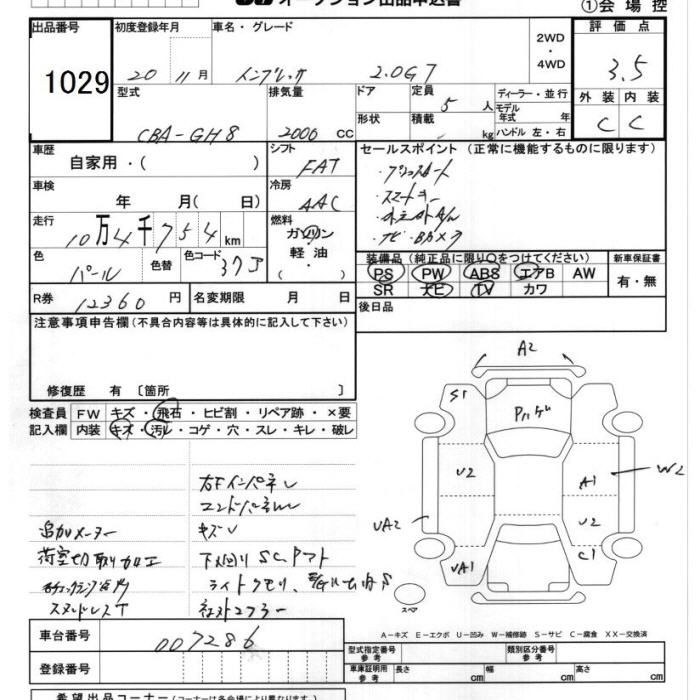 オークション出品申込書
①会場控
出品番号
1029
初度登録年月
20 11月
車名・グレード
インプレッサ 2.0GT
2WD
・
4WD
評価点
3.5
型式
CBA-GH8
排気量
2000 CC
ドア
形状
定員
5人
積載
kg
ディーラー・並行
モデル年式 年
ハンドル 左・右
外装 内装
C C
車歴
自家用・( )
シフト
FAT
車検
年 月( 日)
冷房
AAC
走行
10万4千754km
燃料
ガソリン
軽油
・
色
パール
色替
色コード
37J
R券
12360 円
名変期限 月 日
セールスポイント (正常に機能するものに限ります)
・プッシュスタート
・スマートキー
・ナビ・Bカメラ
装備品 (純正品に限り○をつけてください)
PS PW ABS エアB AW
SR ナビ TV カワ
新車保証書
有・無
後日品
注意事項申告欄(不具合内容等は具体的に記入して下さい)
修復歴 有 〔箇所 〕
検査員
記入欄
FW キズ・飛石・ヒビ割・リペア跡・×要
内装 キズ・汚レ・コゲ・穴・スレ・キレ・破レ
右Fインパネレ
エンドパネルレ
追加メーター キズレ
荷室切取り加工 下回りSC,アト
ライトクモリ
スタッドレスT 社外マフラー
A2
S1
Pハゲ
U2
A1
W2
UA2
U2
UA1
C1
スペア
A-キズ E-エクボ U-凹み W-補修跡 S-サビ C-腐食 XX-交換済
車台番号
007286
登録番号
型式指定番号
参考
類別区分番号
参考
車庫証明用
参考
長さ cm 幅 cm 高さ cm
希望出品コーナー(コーナーは各会場により異なります。)